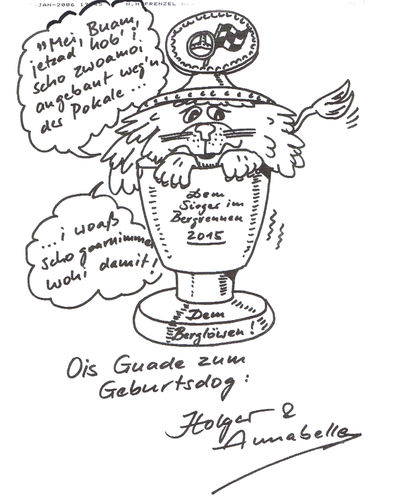 -JAN-2006 17:45 H.H.FRENZEL
"Mei, Buam,
jetzad hob' i
scho zwoamoi
angebaut weg'n
des Pokale...
...i woaß
scho gaarnimmer
wohi damit!
Dem
Sieger im
Bergrennen
2015
Dem
Berglöwen!
Ois Guade zum
Geburtsdog:
Holger &
Annabelle